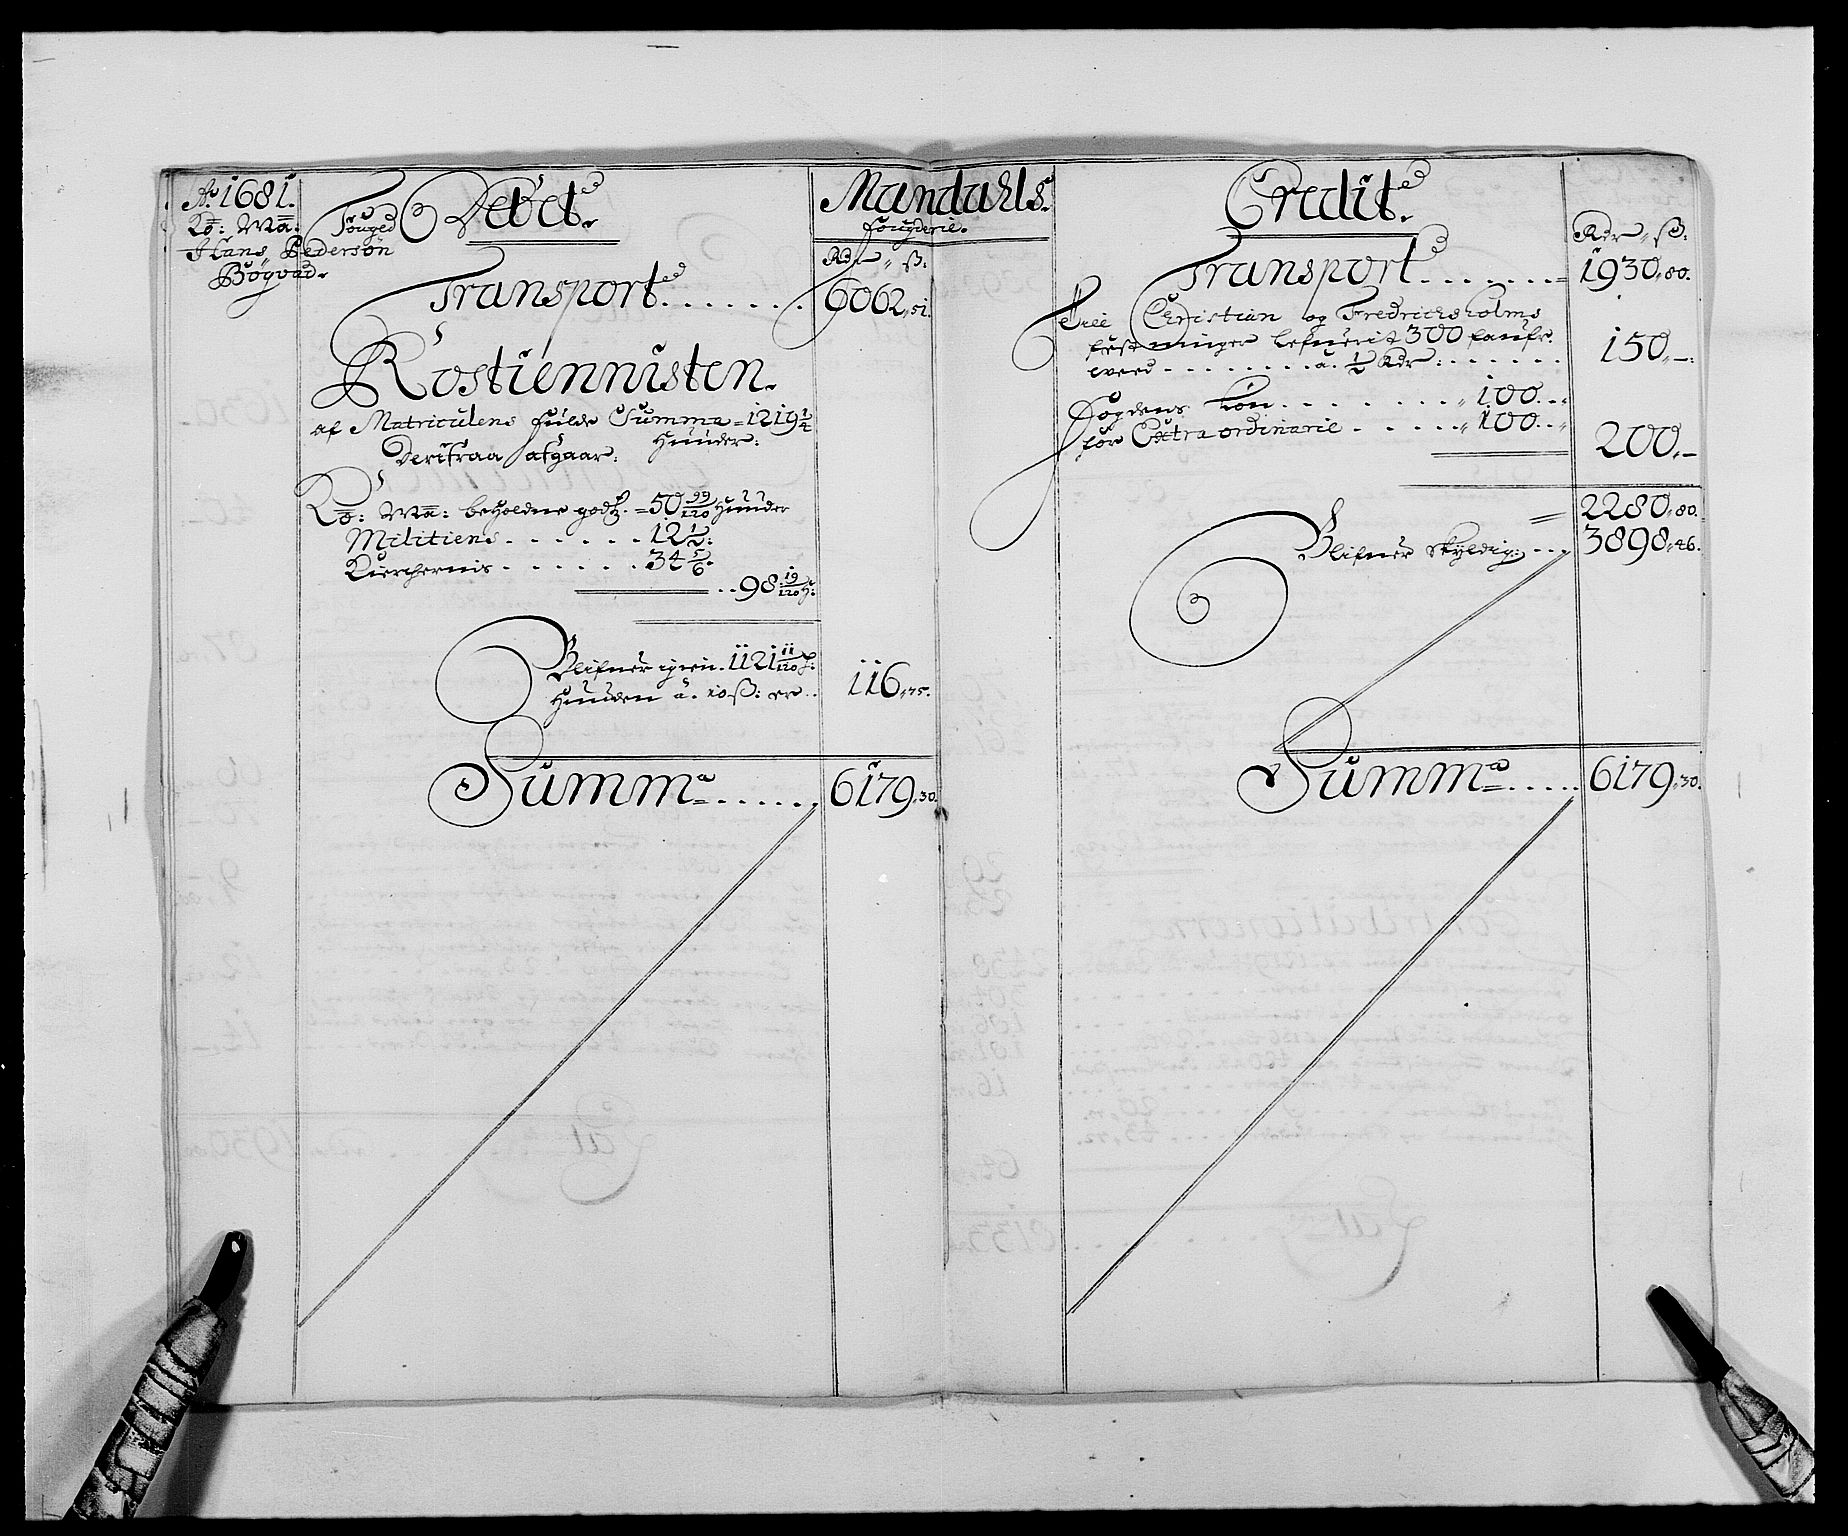 Ao 1681.
Ko: Ma: Fouged
Hans Pedersøn
Bøgvad.
Debet.
Mandahls
fougderie.
Rdr ß:
Transport . . . . . . . 6062 „ 51.
Rostiennisten.
af Matriculens fulde Summa = 1219 1/4
Hunder:
Derifraa afgaar:
Ko: Ma: beholdne godtz. = 50 99/120 Hunder
Militiens . . . . . . 12 1/2:
Kirchernis . . . . . . 34 5/6.
. . 98 19/120 H:
Blifuer igien. 1121 11/120
Hunder a. 10 ß: er . . 116 „ 75.
Summa . . . . . . 6179 „ 30.
Credit.
Rdr „ ß:
Transport . . . . . . . 1930 „ 80.
Christian og Fredrichsholms
festninger lefuerit 300 faufr.
veed . . . . . . . . a. 1/2 Rdr: . . . . . . 150 „ —:
Fogdens Løn . . . . . . . . „ 100 . . „
for Extraordinarie . . . . . „ 100 . . „
200 „ —
2280 „ 80.
Blifuer skyldig: . . . 3898 „ 46.
Summa . . . . . 6179 „ 30.